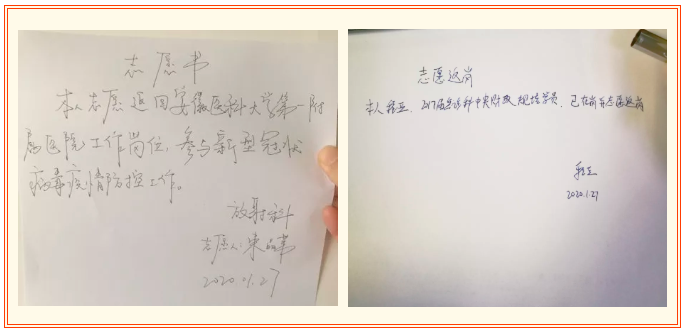 志愿书
本人志愿返回安徽医科大学第一附
属医院工作岗位，参与新型冠状
病毒疫情防控工作。
放射科
志愿人：朱
2020.01.27
志愿返岗
本人程立，2017届 中央财政规培学员，已在 志愿返岗
程立
2020.1.27